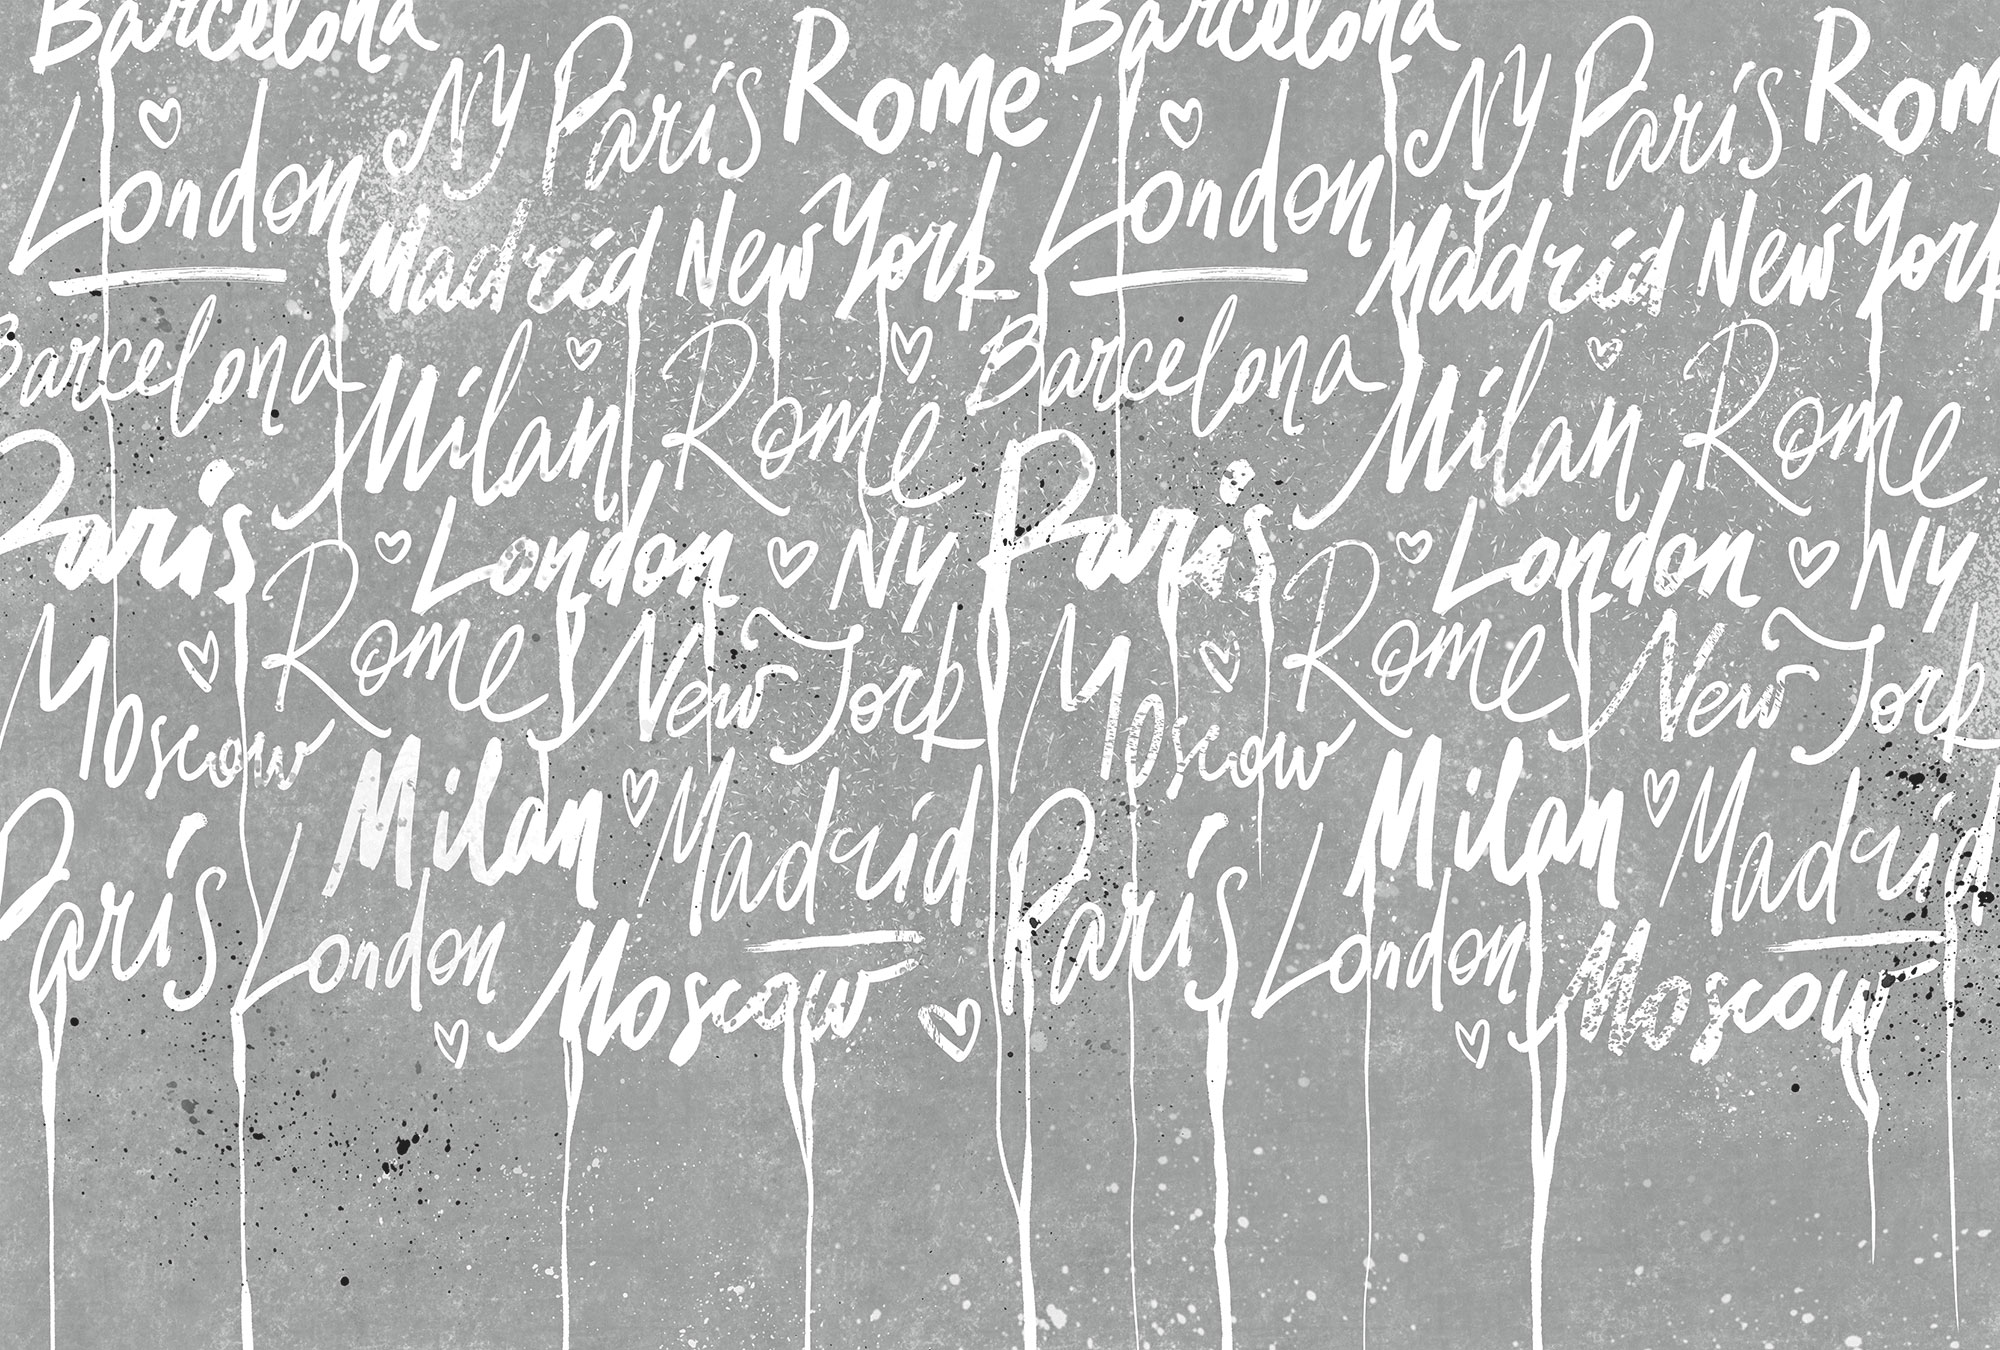 Barcelona Barcelona
Ny Paris Rome Ny Paris Rom
London London
Madrid New York Madrid New York
Barcelona Barcelona
Milan Rome Milan Rome
Paris London Ny Paris London Ny
Moscow Rome New York Moscow Rome New York
Milan Madrid Milan Madrid
Paris London Paris London
Moscow Moscow